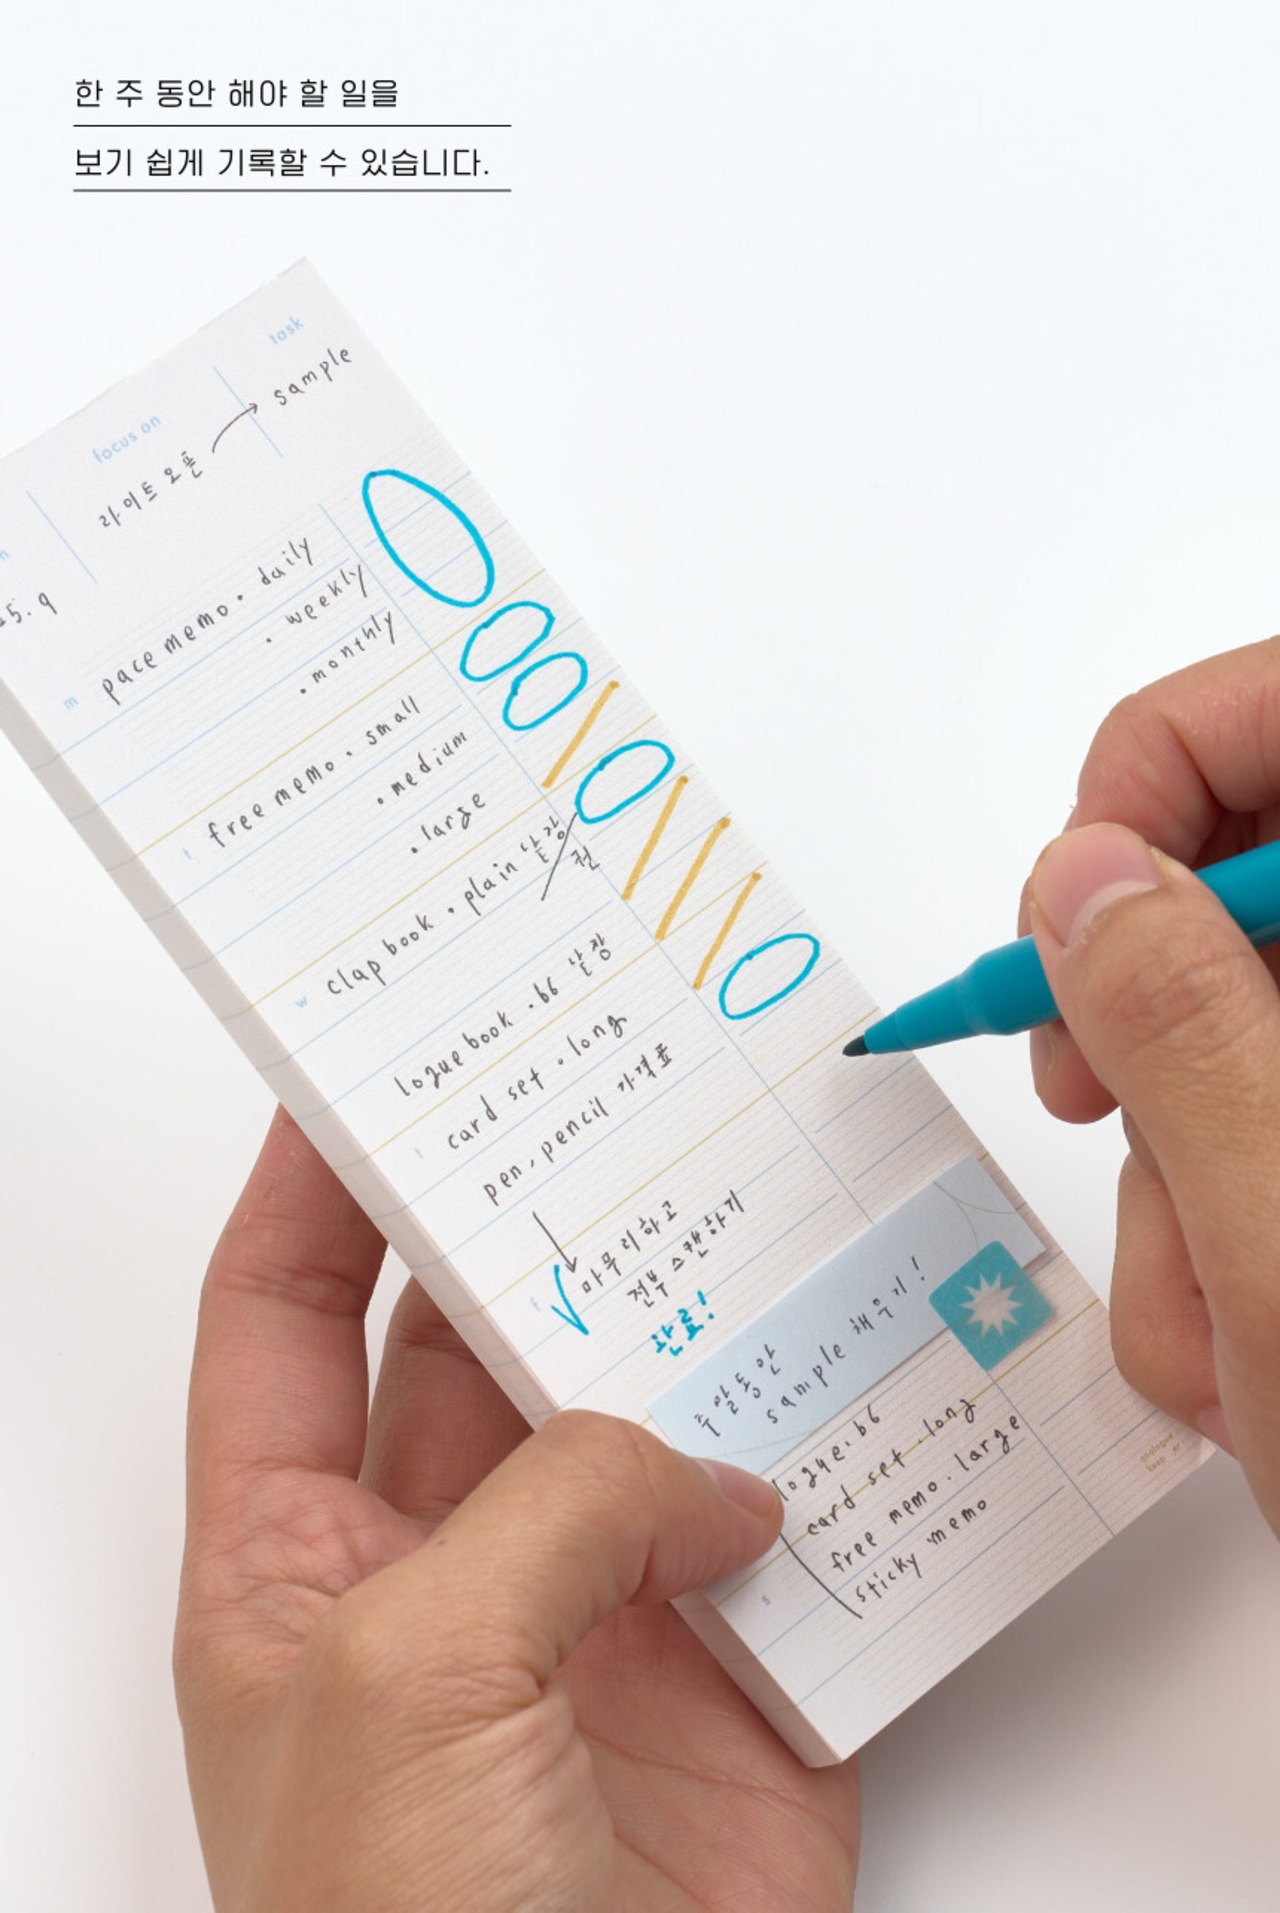 한 주 동안 해야 할 일을
보기 쉽게 기록할 수 있습니다.
focus on
task
라이트 오픈 → sample
25.9
m
pace memo • daily
• weekly
• monthly
t
free memo • small
• medium
• large
w
clap book • plain 낱장
권
logue book • b6 낱장
t
card set • long
pen, pencil 가격표
f
마무리하고
전부 스캔하기
완료!
주말동안
sample 채우기!
logue • b6
card set • long
free memo • large
sticky memo
s
analogue
keeper